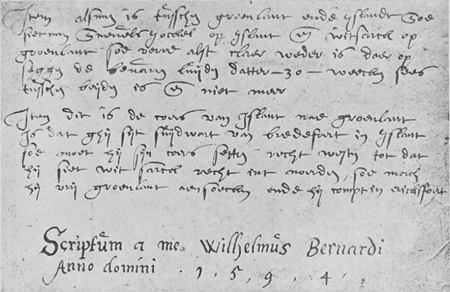 Item alsmen is tusschen groenlant ende ijslandt Soe
siet men Snevels Jockel op ijslant en witsarck op
groenlant soe verre alst claer weder is daer op
seggen de luijden datter - 30 - weecken sees
tusschen beijden is en niet meer
Item dit is de coers van Islant nae groenlant
Is dat ghij sijt suijdwart van bredefort in ijslant
soe moet hij sijn coers setten recht westen tot dat
hij siet witsarck recht int noorden, soe mach
hij vrij groenlant aensoecken ende hij compt in erichsfort
Scriptum a me Wilhelmus Bernardi
Anno domini . 1 . 5 . 9 . 4 .